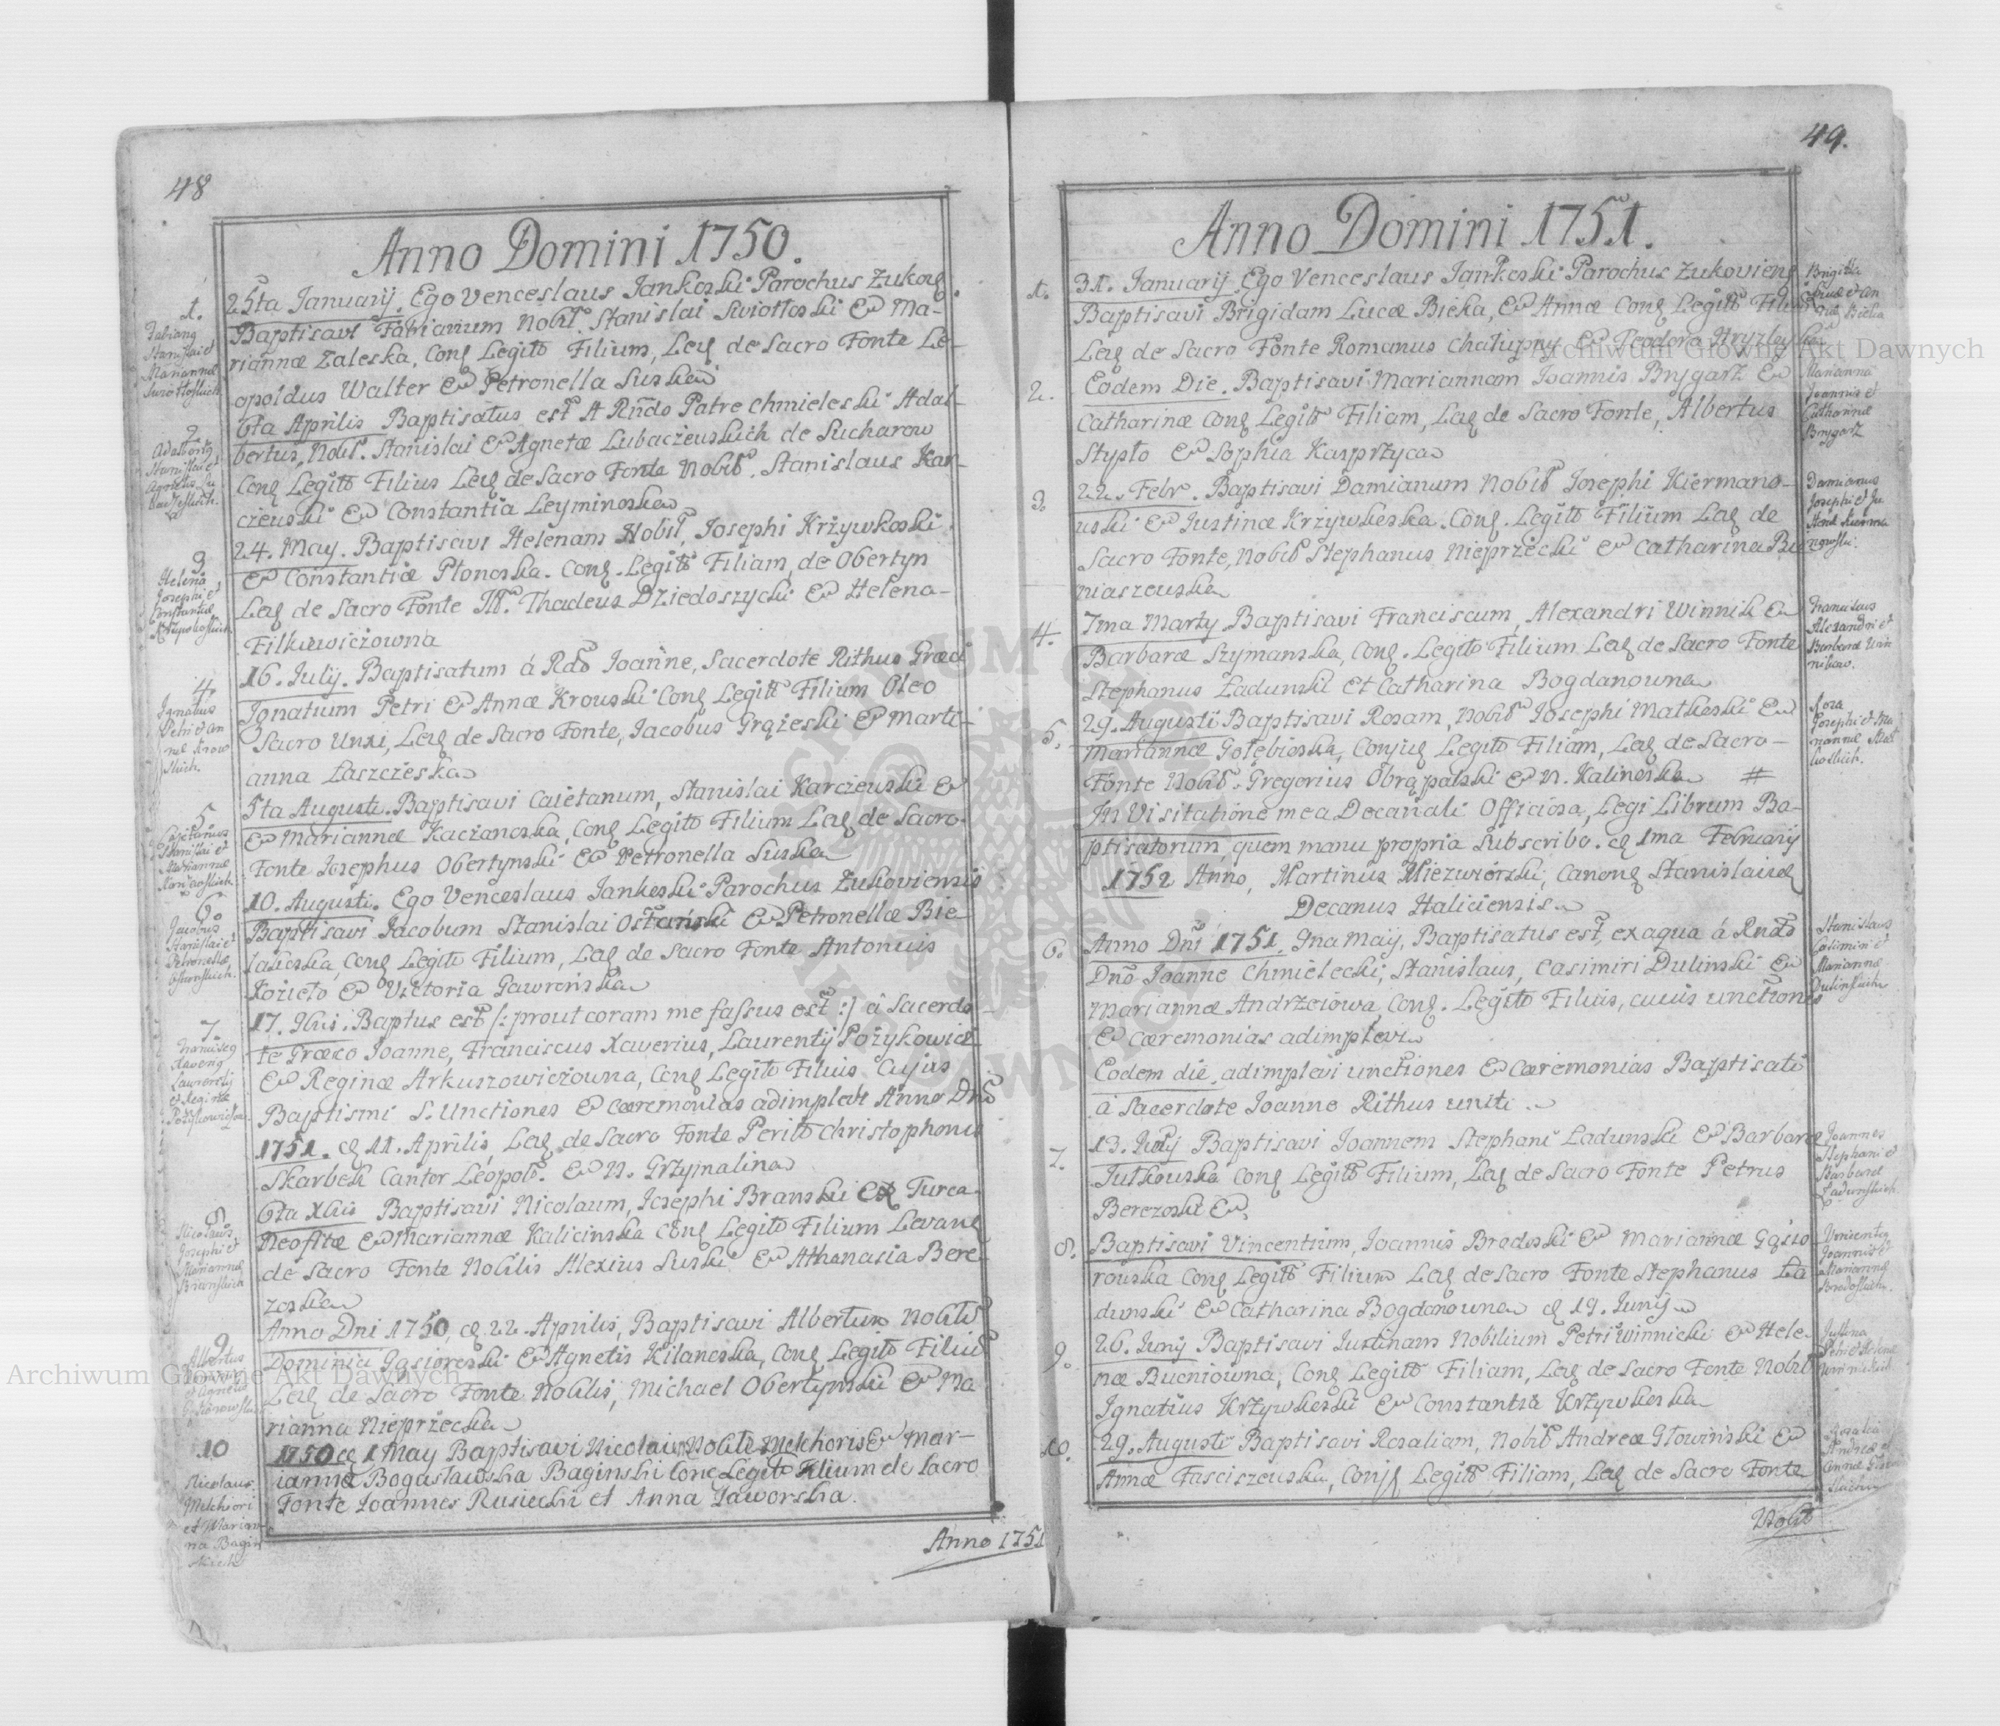 48
Anno Domini 1750.
1.
Fabiang
Stanislai et
Mariannæ
25ta Januarij. Ego Venceslaus Jankoski Parochus Zukoỹ.
Baptisavi Fabianum Nobil. Stanislai Swiotłoski & Ma-
riannæ Zaleska, Conỹ Legitō Filium, Leỹ de Sacro Fonte Le-
opoldus Walter & Petronella Suska
2
Adalberty
Stanislai et
Agnetis Lu
6ta Aprilis Baptisatus est A Rñdo Patre Chmieleski Adal-
bertus, Nobil. Stanislai & Agnetæ Lubaczeuskich de Sucharow
Conỹ Legitō Filius Leỹ de Sacro Fonte Nobil. Stanislaus Kar-
czeuski & Constantia Leyminoska
3
Helena
Josephi et
Constantiæ
24. May. Baptisavi Helenam Nobil, Josephi Krżywkoski
& Constantiæ Płonoska. Conỹ. Legitō Filiam, de Obertyn
Leỹ de Sacro Fonte M. Thadeus Dziedoszycki & Helena-
Filkiewiczowna
4.
Ignatius
Petri et An
næ Krow
skich.
16. Julij. Baptisatum á Rdō Joanne, Sacerdote Rithus Græci
Ignatium Petri & Annæ Krouski Conỹ Legitō Filium Oleo
Sacro Unxi, Leỹ de Sacro Fonte, Jacobus Grążeski & Marti-
anna Łaszczeska
5
Cajetanus
Stanislai et
Mariannæ
5ta Augusti. Baptisavi Caietanum, Stanislai Karczeuski &
& Mariannæ Kaczanoska, Conỹ Legitō Filium Leỹ de Sacro
Fonte Josephus Obertynski & Petronella Suska
6
Jacobus
Stanislai et
Petronellæ
10. Augusti. Ego Venceslaus Jankoski Parochus Zukoviensis
Baptisavi Jacobum Stanislai Ostański & Petronellæ Bie-
laleska, Conỹ Legitō Filium, Leỹ de Sacro Fonte Antonius
Kożieło & Victoria Gawrońska
7
Franciscg
Xaverig
Laurentij
et Reginæ
17. Xbris. Baptus est [: prout coram me fassus est :] á Sacerdo-
te Græco Joanne, Franciscus Xawerius, Laurentij Pożykowicz
& Reginæ Arkuszowiczowna, Conỹ Legitō Filius Cujus
Baptismi S. Unctiones & cæremonias adimplevi Anno Dnī
1751. ỹ 11. Aprilis, Leỹ de Sacro Fonte Peritō Christophorus
Skarbek Cantor Leopol. & N. Grżymalina
8
Nicolaus
Josephi et
Mariannæ
Branskich
6ta Xbris Baptisavi Nicolaum, Josephi Branski Ex Turca-
Neofitæ & Mariannæ Kalicinska Conỹ Legitō Filium Levanỹ
de Sacro Fonte Nobilis Alexius Suski & Athanasia Bere-
zoska
9
Albertus
Anno Dni 1750, ỹ 22. Aprilis, Baptisavi Albertum Nobilis
Dominici Gąsioroski & Agnetis Kilanoska, Conỹ Legitō Filius
Leỹ de Sacro Fonte Nobilis, Michael Obertynski & Ma
rianna Nieprżecka
10
Nicolaus
Melchiori
et Marian
na Bagin
skich
1750 ỹ 1 May Baptisavi Nicolaum Nobili Melchoris & Mar-
iannæ Boguslawska Baginski Conỹ Legito Filium de Sacro
Fonte Joannes Rusiecki et Anna Jaworska.
Anno 1751
49.
Anno Domini 1751.
1.
31. Januarij Ego Venceslaus Jankoski Parochus Zukovienỹ
Baptisavi Brigidam Lucæ Bieka, & Annæ Conỹ Legitō Filiam
Leỹ de Sacro Fonte Romanus Chałupny & Teodora
Brigitta
Lucæ et An
næ Bieka
2.
Eodem Die. Baptisavi Mariannam Joannis Bnjgarz &
Catharinæ Conỹ Legitō Filiam, Leỹ de Sacro Fonte, Albertus
Stypło & Sophia Kasprżyca
Marianna
Joannis et
Catharinæ
Bnjgarz
3.
22. Febr. Baptisavi Damianum Nobil Josephi Kiermano-
uski & Justinæ Krżywkoska. Conỹ. Legitō Filium Leỹ de
Sacro Fonte, Nobil Stephanus Nieprżecki & Catharina Bu-
niaszeuska
Damianus
Josephi et Ju
stinæ Kierma
nowski.
4.
7ma Martij Baptisavi Franciscum, Alexandri Winnik &
Barbaræ Szymanska, Conỹ. Legitō Filium Leỹ de Sacro Fonte
Stephanus Ładunski et Catharina Bogdanowna
Franciscus
Alexandri et
Barbaræ Win
nikow.
5.
29. Augusti Baptisavi Rosam, Nobil Josephi Matkoski &
Mariannæ Gołębioska, Conjuỹ Legitō Filiam, Leỹ de Sacro-
Fonte Nobil. Gregorius Obrąpalski & N. Kalinoska #
Rosa
Josephi et Ma
riannæ Mat
koskich.
In Visitatione mea Decanali Officiosa, Legi Librum Ba-
ptisatorium, quem manu propria Subscribo. ỹ 1ma February
1752 Anno, Martinus Miezwiński, Canonỹ Stanislaisỹ
Decanus Haliciensis
6.
Anno Dni 1751. 9na Maij, Baptisatus est, ex aqua á Rndō
Dnō Joanne Chmielecki, Stanislaus, Casimiri Dulinski &
Mariannæ Andrzeiowa, Conỹ. Legitō Filius, cuius unctiones
& cæremonias adimplevi
Stanislaus
Casimiri et
Mariannæ
Dulinskich
Eodem die, adimplevi unctiones & cæremonias Baptisati
á Sacerdote Joanne Rithus uniti.
7.
13. Junij Baptisavi Joannem Stephani Ładunski & Barbaræ
Jutkouska Conỹ Legitō Filium, Leỹ de Sacro Fonte Petrus
Berezoski &
Joannes
Stephani et
Barbaræ
Ładunskich.
8.
Baptisavi Vincentium, Joannis Brodoski & Mariannæ Gąsio-
rouska Conỹ Legitō Filium Leỹ de Sacro Fonte Stephanus Ła
dunski & Catharina Bogdanowna ỹ 19. Junij
Vincentig
Joannis et
Mariannæ
Brodoskich.
9.
26. Junij Baptisavi Justinam Nobilium Petri Winnicki & Hele-
næ Bueniowna, Conỹ Legitō Filiam, Leỹ de Sacro Fonte Nobil
Ignatius Krżywkoski & Constantia Krżywkoska
Justina
Petri et Helenæ
Winnickich
10.
29. Augusti Baptisavi Rosaliam, Nobil Andreæ Głowiński &
Annæ Fasciszeuska, Conjỹ Legitō Filiam, Leỹ de Sacro Fonte
Rosalia
Andreæ et
Annæ
Nobil
Archiwum Główne Akt Dawnych
Archiwum Główne Akt Dawnych